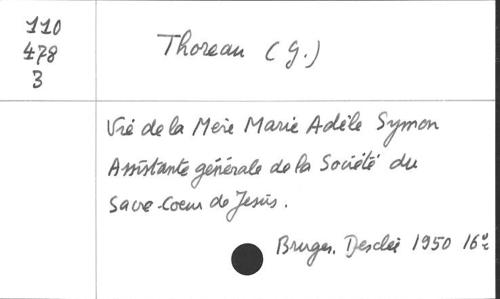 110
478
3
Thoreau (G.)
Vie de la Mère Marie Adèle Symon
Assistante générale de la Société du
Sacre-Coeur de Jesus.
Bruges. Desclée 1950 16º